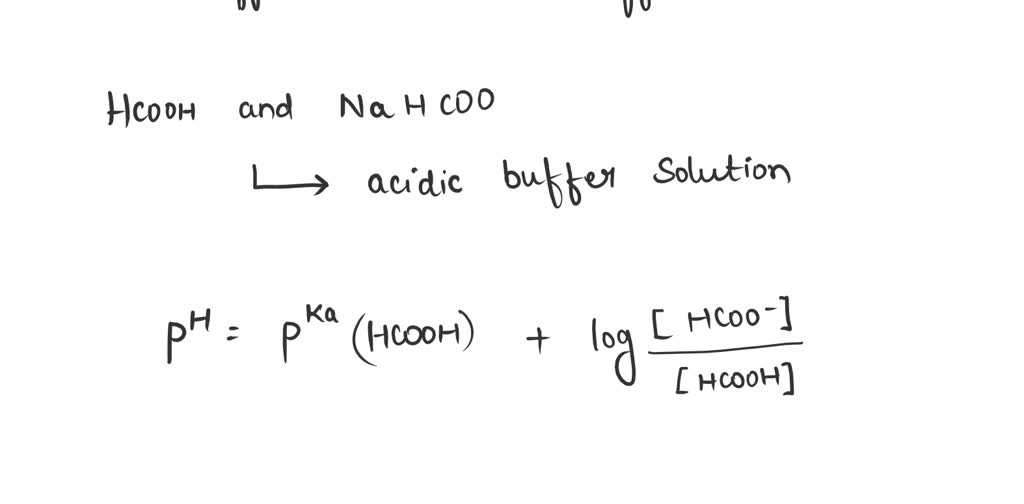 HCOOH and NaHCOO
↳ acidic buffer solution
pH = pKa (HCOOH) + log [HCOO-] / [HCOOH]